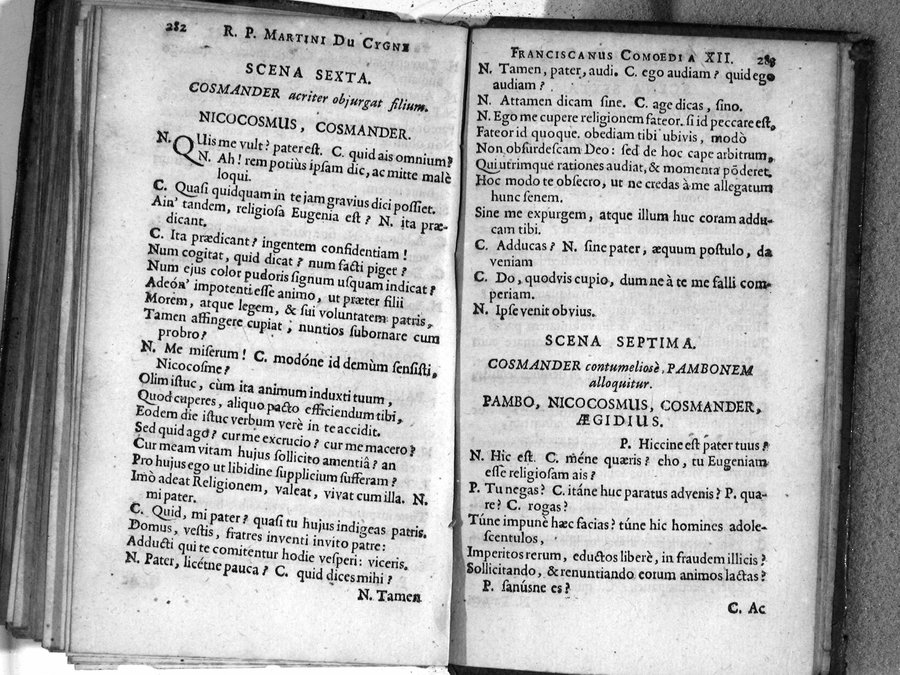 282 R. P. MARTINI DU CYGNE
SCENA SEXTA.
COSMANDER acriter objurgat filium.
NICOCOSMUS, COSMANDER.
N. QUis me vult? pater est. C. quid ais omnium?
N. Ah! rem potiùs ipsam dic, ac mitte malè
loqui.
C. Quasi quidquam in te jam gravius dici possiet.
Ain' tandem, religiosa Eugenia est? N. ita præ-
dicant.
C. Ita prædicant? ingentem confidentiam!
Num cogitat, quid dicat? num facti piget?
Num ejus color pudoris signum usquam indicat?
Adeón' impotenti esse animo, ut præter filii
Morem, atque legem, & sui voluntatem patris,
Tamen affingere cupiat; nuntios subornare cum
probro?
N. Me miserum! C. modóne id demùm sensisti,
Nicocosme?
Olim istuc, cùm ita animum induxti tuum,
Quod cuperes, aliquo pacto efficiendum tibi,
Eodem die istuc verbum verè in te accidit.
Sed quid ago? cur me excrucio? cur me macero?
Cur meam vitam hujus sollicito amentiâ? an
Pro hujus ego ut libidine supplicium sufferam?
Imò adeat Religionem, valeat, vivat cum illa. N.
mi pater.
C. Quid, mi pater? quasi tu hujus indigeas patris.
Domus, vestis, fratres inventi invito patre:
Adducti qui te comitentur hodie vesperi: viceris.
N. Pater, licétne pauca? C. quid dices mihi?
N. Tamen
FRANCISCANUS COMOEDIA XII. 283
N. Tamen, pater, audi. C. ego audiam? quid ego
audiam?
N. Attamen dicam sine. C. age dicas, sino.
N. Ego me cupere religionem fateor. si id peccare est,
Fateor id quoque. obediam tibi ubivis, modò
Non obsurdescam Deo: sed de hoc cape arbitrum,
Qui utrimque rationes audiat, & momenta põderet.
Hoc modo te obsecro, ut ne credas à me allegatum
hunc senem.
Sine me expurgem, atque illum huc coram addu-
cam tibi.
C. Adducas? N. sine pater, æquum postulo, da
veniam
C. Do, quodvis cupio, dum ne à te me falli com-
periam.
N. Ipse venit obvius.
SCENA SEPTIMA.
COSMANDER contumeliosè, PAMBONEM
alloquitur.
PAMBO, NICOCOSMUS, COSMANDER,
ÆGIDIUS.
P. Hiccine est pater tuus?
N. Hic est. C. méne quæris? eho, tu Eugeniam
esse religiosam ais?
P. Tu negas? C. itáne huc paratus advenis? P. qua-
re? C. rogas?
Túne impunè hæc facias? túne hic homines adole-
scentulos,
Imperitos rerum, eductos liberè, in fraudem illicis?
Sollicitando, & renuntiando eorum animos lactas?
P. sanúsne es?
C. Ac